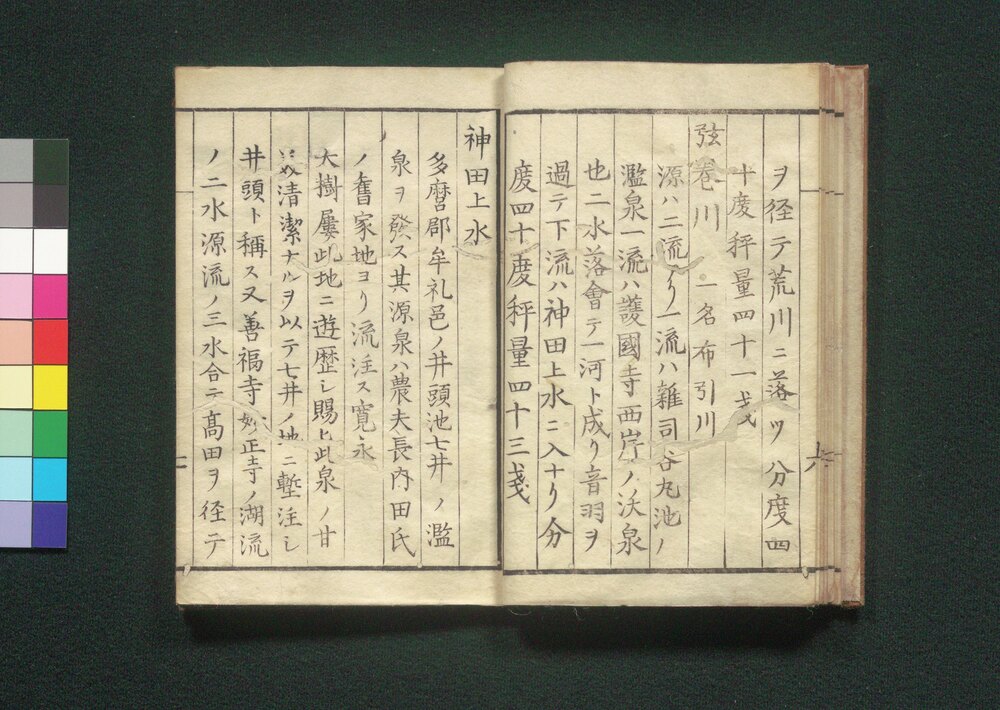 ヲ径テ荒川ニ落ツ分度四
十度秤量四十一戔
弦巻川 一名布引川
源ハ二流リ一流ハ雜司谷丸池ノ
濫泉一流ハ護國寺西岸ノ沃泉
也二水落會テ一河ト成リ音羽ヲ
過テ下流ハ神田上水ニ入ナリ分
度四十度秤量四十三戔
神田上水
多麿郡牟礼邑ノ井頭池七井ノ濫
泉ヲ發ス其源泉ハ農夫長内田氏
ノ舊家地ヨリ流注ス寛永
大樹屢此地ニ遊歴シ賜ヒ此泉ノ甘
美清潔ナルヲ以テ七井ノ地ニ塹注シ
井頭ト稱ス又善福寺妙正寺ノ湖流
ノ二水源流ノ三水合テ髙田ヲ径テ